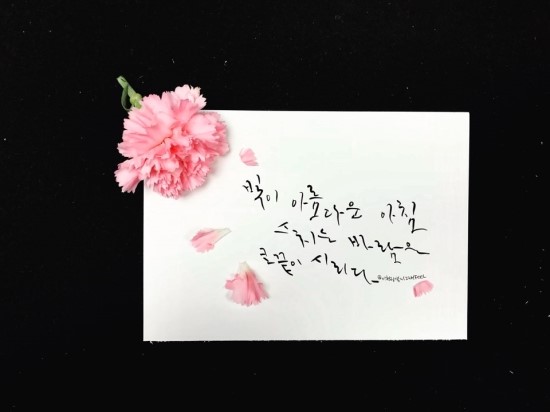 빛이 아름다운 아침
스치는 바람은
코끝이 시리다_